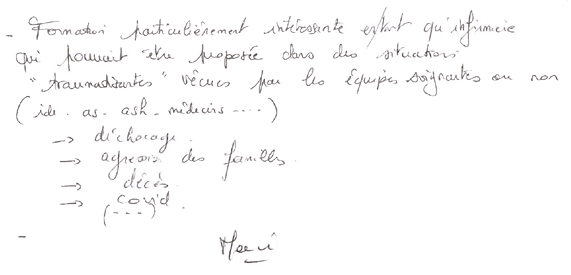 - Formation particulièrement intéressante entant qu'infirmière
qui pourrait être proposée dans des situations
"traumatisantes" vécues par les équipes soignantes ou non
(ide. as. ash. médecins ....)
→ déchocage.
→ agressions des familles.
→ décès.
→ covid.
(---)
-
Merci